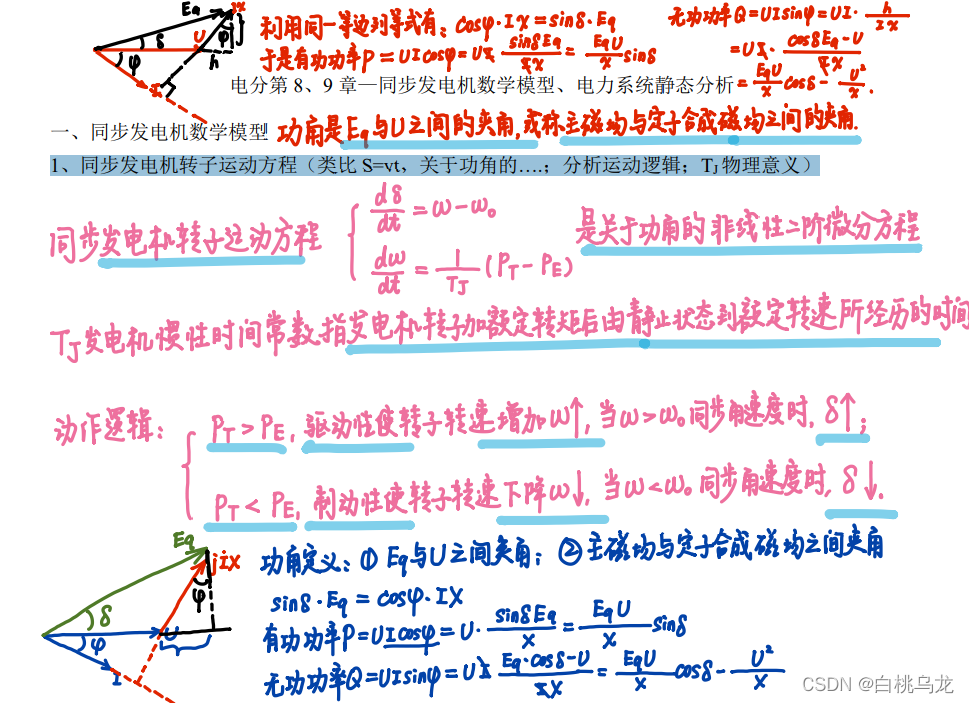 Eq
jx
δ
U
φ
φ
h
I
利用同一等边列等式有: cosφ·IX=sinδ·Eq
于是有功功率P=UIcosφ=UX·sinδEq/IX=EqU/X sinδ
无功功率Q=UIsinφ=UI·h/IX
=UX·cosδEq-U/IX
=EqU/X cosδ-U²/X.
电分第 8、9 章—同步发电机数学模型、电力系统静态分析
一、同步发电机数学模型
功角是Eq与U之间的夹角,或称主磁场与定子合成磁场之间的夹角.
1、同步发电机转子运动方程（类比 S=vt，关于功角的….；分析运动逻辑；TJ 物理意义）
同步发电机转子运动方程
dδ/dt=ω-ω₀
dω/dt=1/TJ(PT-PE)
是关于功角的非线性二阶微分方程
TJ发电机惯性时间常数,指发电机转子加额定转矩后由静止状态到额定转速所经历的时间
动作逻辑:
PT>PE, 驱动性使转子转速增加ω↑,当ω>ω₀同步角速度时,δ↑;
PT<PE, 制动性使转子转速下降ω↓,当ω<ω₀同步角速度时,δ↓.
Eq
jİX
φ
δ
U
φ
I
功角定义:①Eq与U之间夹角;②主磁场与定子合成磁场之间夹角
sinδ·Eq=cosφ·IX
有功功率P=UIcosφ=U·sinδEq/X=EqU/X sinδ
无功功率Q=UIsinφ=UI·Eq·cosδ-U/IX=EqU/X cosδ-U²/X
CSDN @白桃乌龙